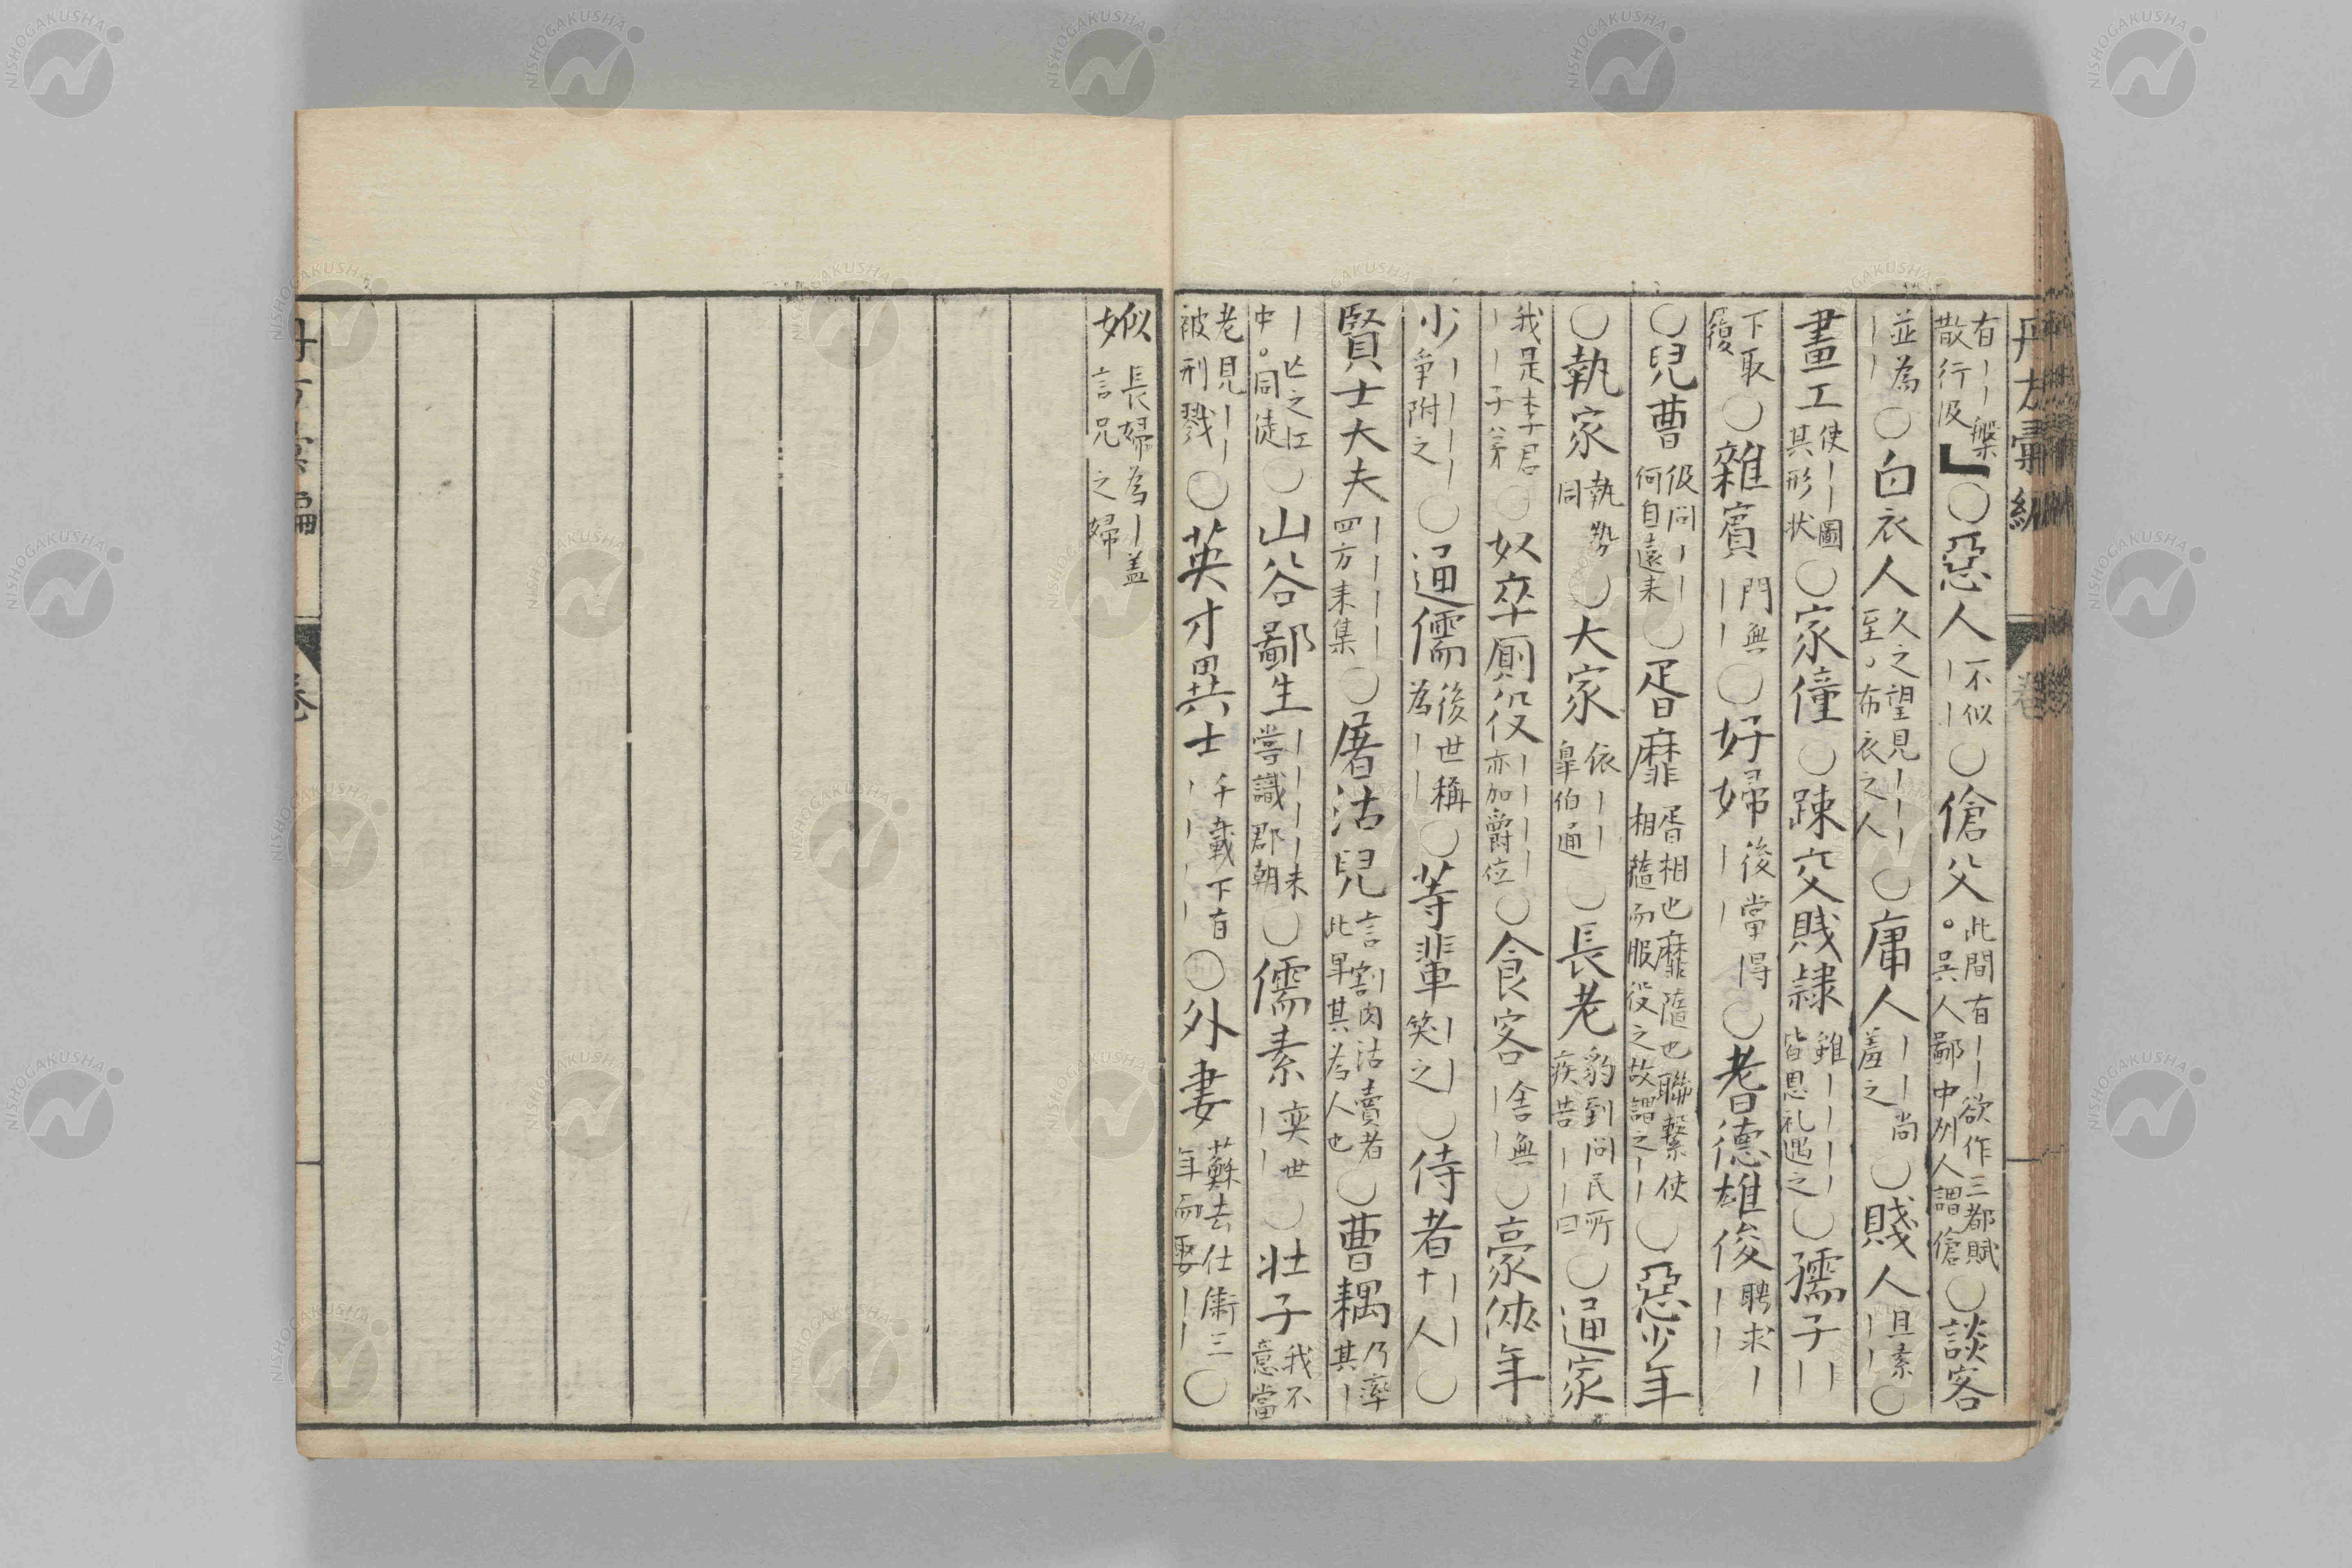 有丨丨槃散行汲○惡人不似丨丨○傖父此間有丨丨欲作三都賦。吳人鄙中州人謂傖○談客
並為丨丨○白衣人久之望見丨丨丨至，布衣之人○庸人丨丨尚羞之○賤人且素丨丨○
畫工使丨丨圖其形状○家僮○踈交賤隷雖丨丨丨丨皆恩礼遇之○孺子丨丨丨
下取履○雜賓門無丨丨○好婦後當得丨丨○耆德雄俊聘求丨丨丨
○兒曹伋问丨丨何自遠来○胥靡胥相也靡隨也聯繫使相隨而服役之故謂之丨丨○惡少年
○執家執勢同○大家依丨丨皐伯通○長老豹到问民所疾苦丨丨曰○通家
我是李君丨丨子弟○奴卒厠役丨丨丨丨亦加爵位○食客舎無丨丨○豪俠年
少丨丨丨丨争附之○通儒後世稱為丨丨○等輩丨丨笑之○侍者丨丨十人○
賢士大夫丨丨丨丨四方来集○屠沽兒言割肉沽賣者此卑其為人也○曹耦乃率其丨
丨亡之江中。同徒○山谷鄙生丨丨丨丨未嘗識郡朝○儒素奕世丨丨○壮子我不意當
老見丨丨被刑戮○英才異士千載下有丨丨丨丨○外妻蘇去仕衛三年而娶丨丨○
姒長婦為丨盖言兄之婦